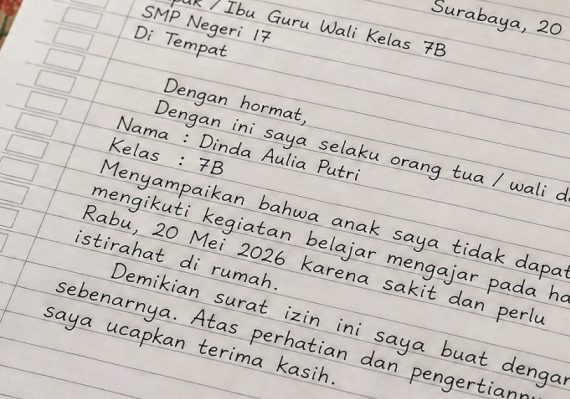 Surabaya, 20
/ Ibu Guru Wali Kelas 7B
SMP Negeri 17
Di Tempat
Dengan hormat,
Dengan ini saya selaku orang tua / wali
Nama : Dinda Aulia Putri
Kelas : 7B
Menyampaikan bahwa anak saya tidak dapat
mengikuti kegiatan belajar mengajar pada
Rabu, 20 Mei 2026 karena sakit dan perlu
istirahat di rumah.
Demikian surat izin ini saya buat dengan
sebenarnya. Atas perhatian dan
saya ucapkan terima kasih.